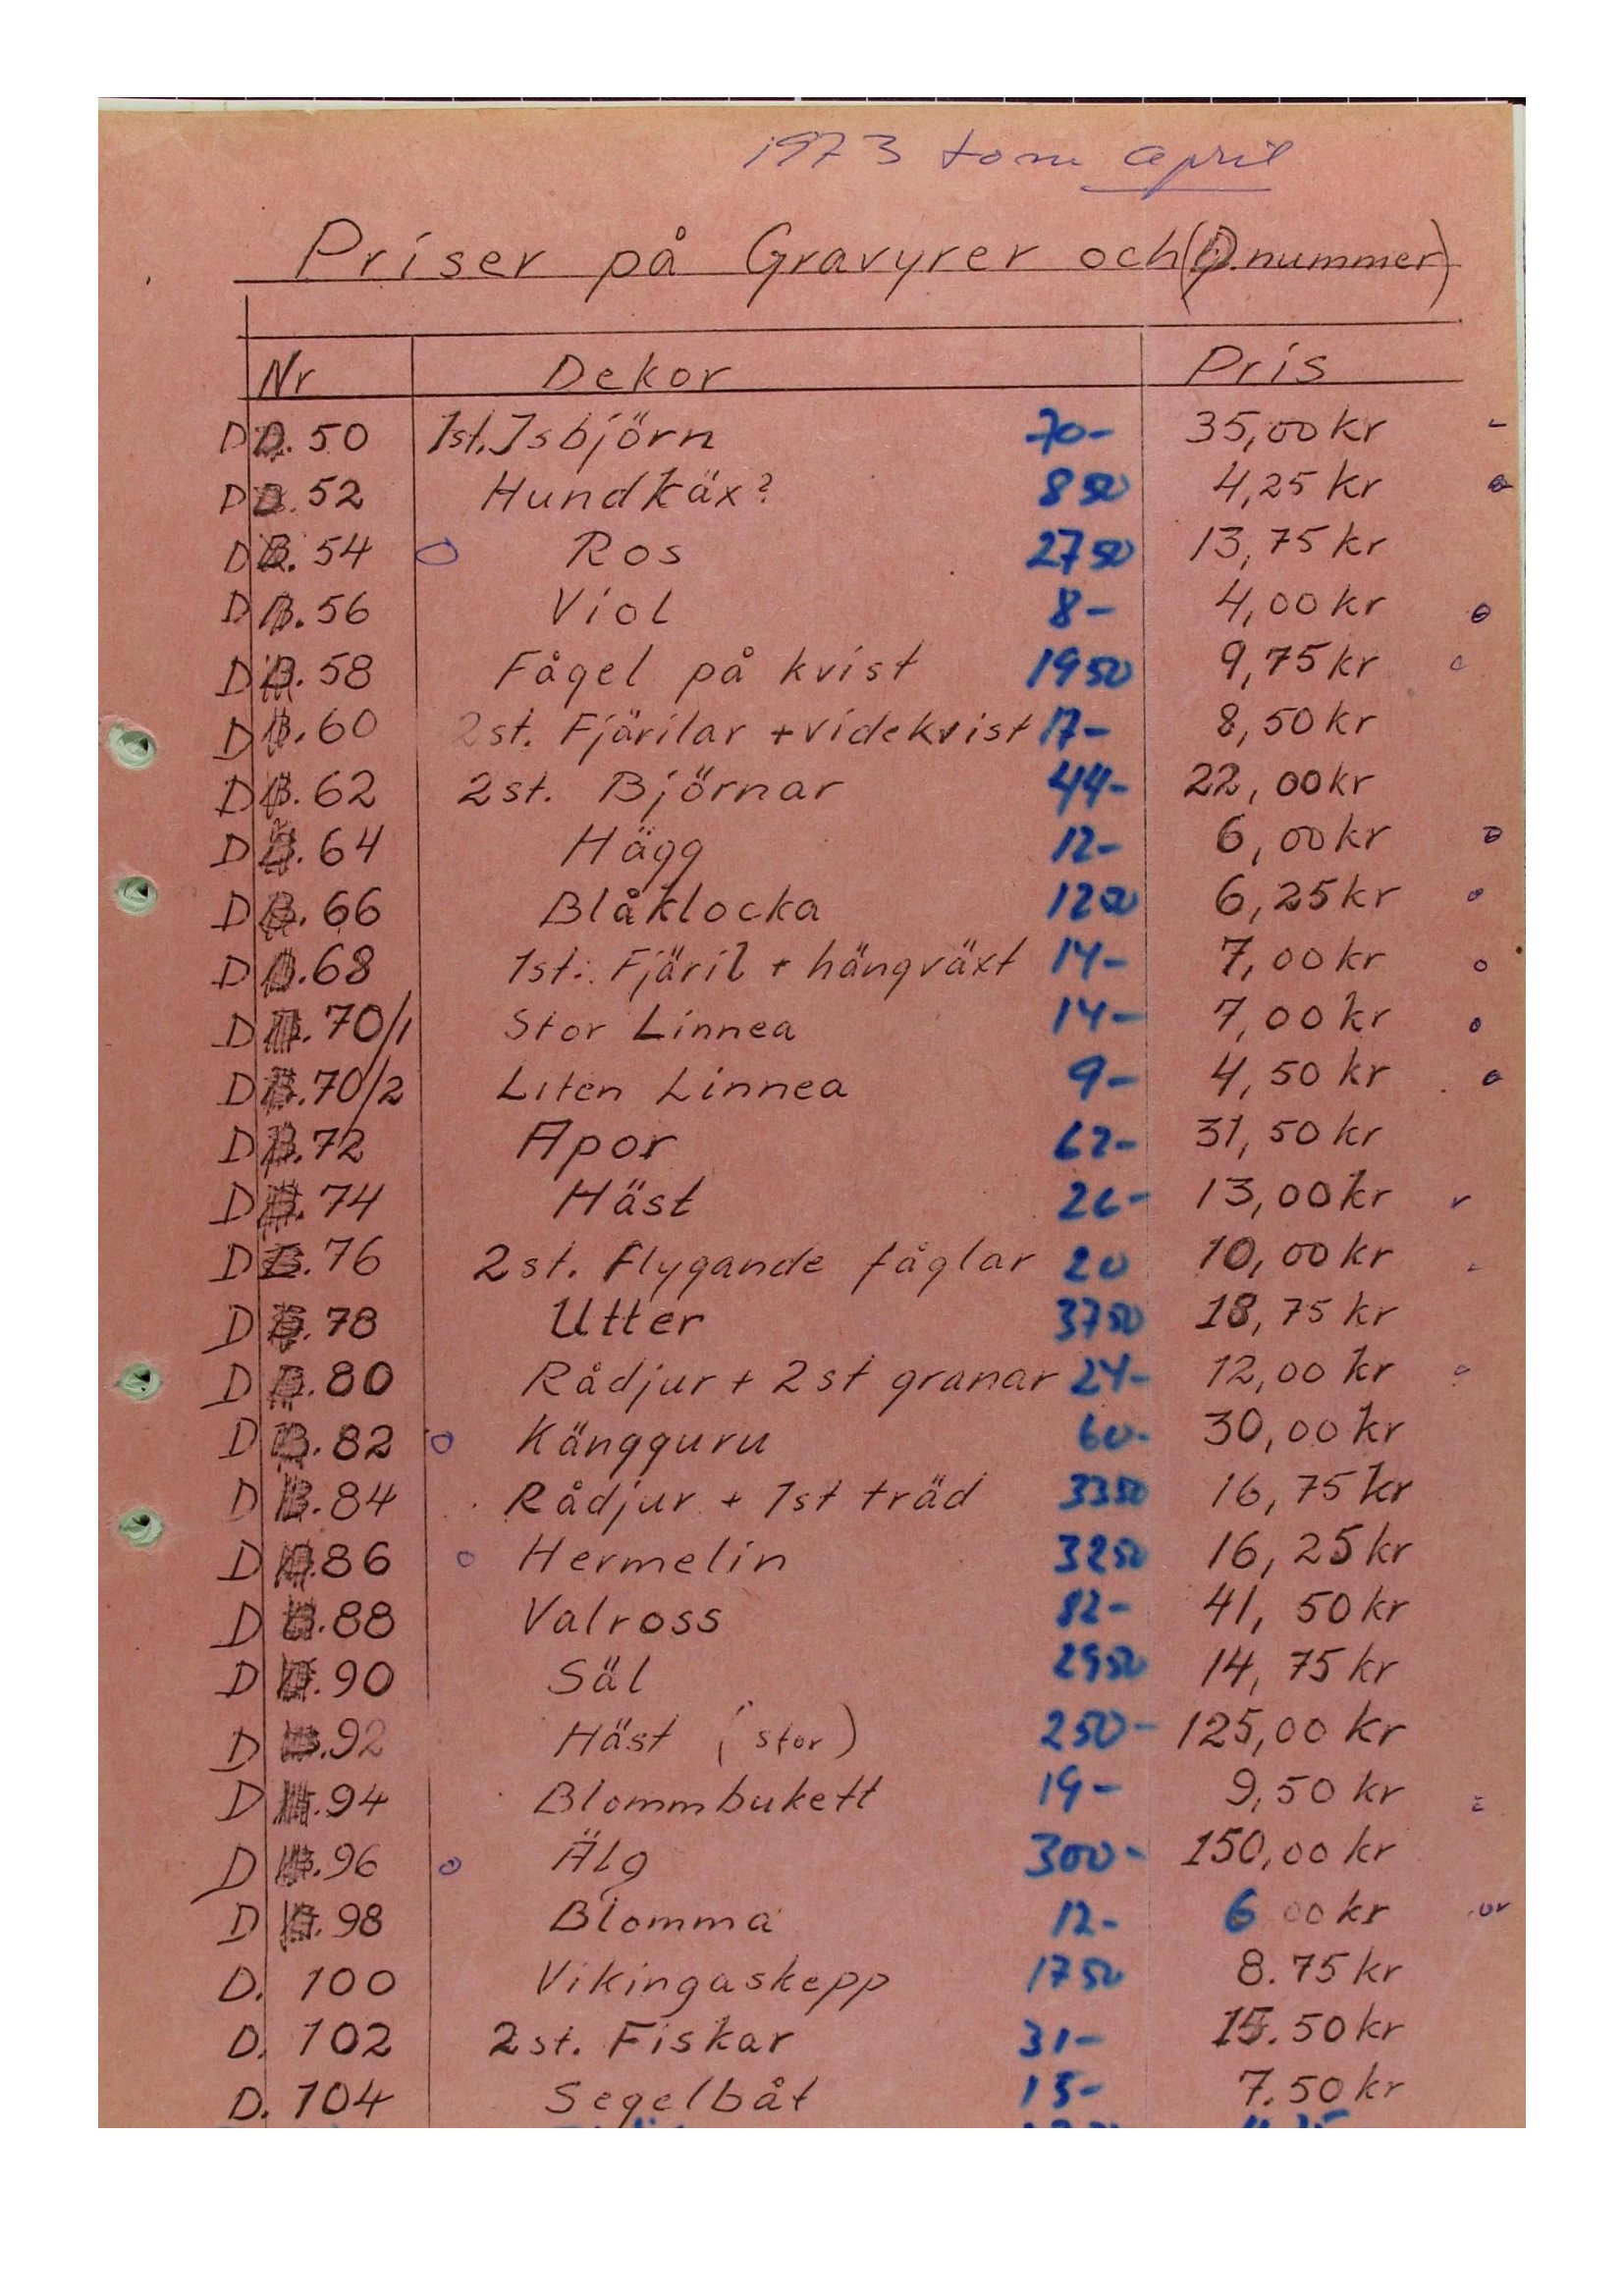 1973 tom april
Priser på Gravyrer och (D. nummer)
Nr Dekor Pris
D. 50 1st. Isbjörn 70- 35,00 kr
D. 52 Hundkäx? 850 4,25 kr
D. 54 Ros 2750 13,75 kr
D. 56 Viol 8- 4,00 kr
D. 58 Fågel på kvist 1950 9,75 kr
D. 60 2st. Fjärilar + videkvist 17- 8,50 kr
D. 62 2st. Björnar 44- 22,00 kr
D. 64 Hägg 12- 6,00 kr
D. 66 Blåklocka 6,25 kr
D. 68 1st. Fjäril + hängväxt 14- 7,00 kr
D. 70/1 Stor Linnea 14- 7,00 kr
D. 70/2 Liten Linnea 9- 4,50 kr
D. 72 Apor 62- 31,50 kr
D. 74 Häst 26- 13,00 kr
D. 76 2st. flygande fåglar 20 10,00 kr
D. 78 Utter 3750 18,75 kr
D. 80 Rådjur + 2st granar 24- 12,00 kr
D. 82 Kängguru 60- 30,00 kr
D. 84 Rådjur + 1st träd 3350 16,75 kr
D. 86 Hermelin 3250 16,25 kr
D. 88 Valross 82- 41,50 kr
D. 90 Säl 2950 14,75 kr
D. 92 Häst (stor) 250- 125,00 kr
D. 94 Blommbukett 19- 9,50 kr
D. 96 Älg 300- 150,00 kr
D. 98 Blomma 12- 6 00 kr
D. 100 Vikingaskepp 1750 8.75 kr
D. 102 2st. Fiskar 31- 15.50 kr
D. 104 Segelbåt 15- 7.50 kr